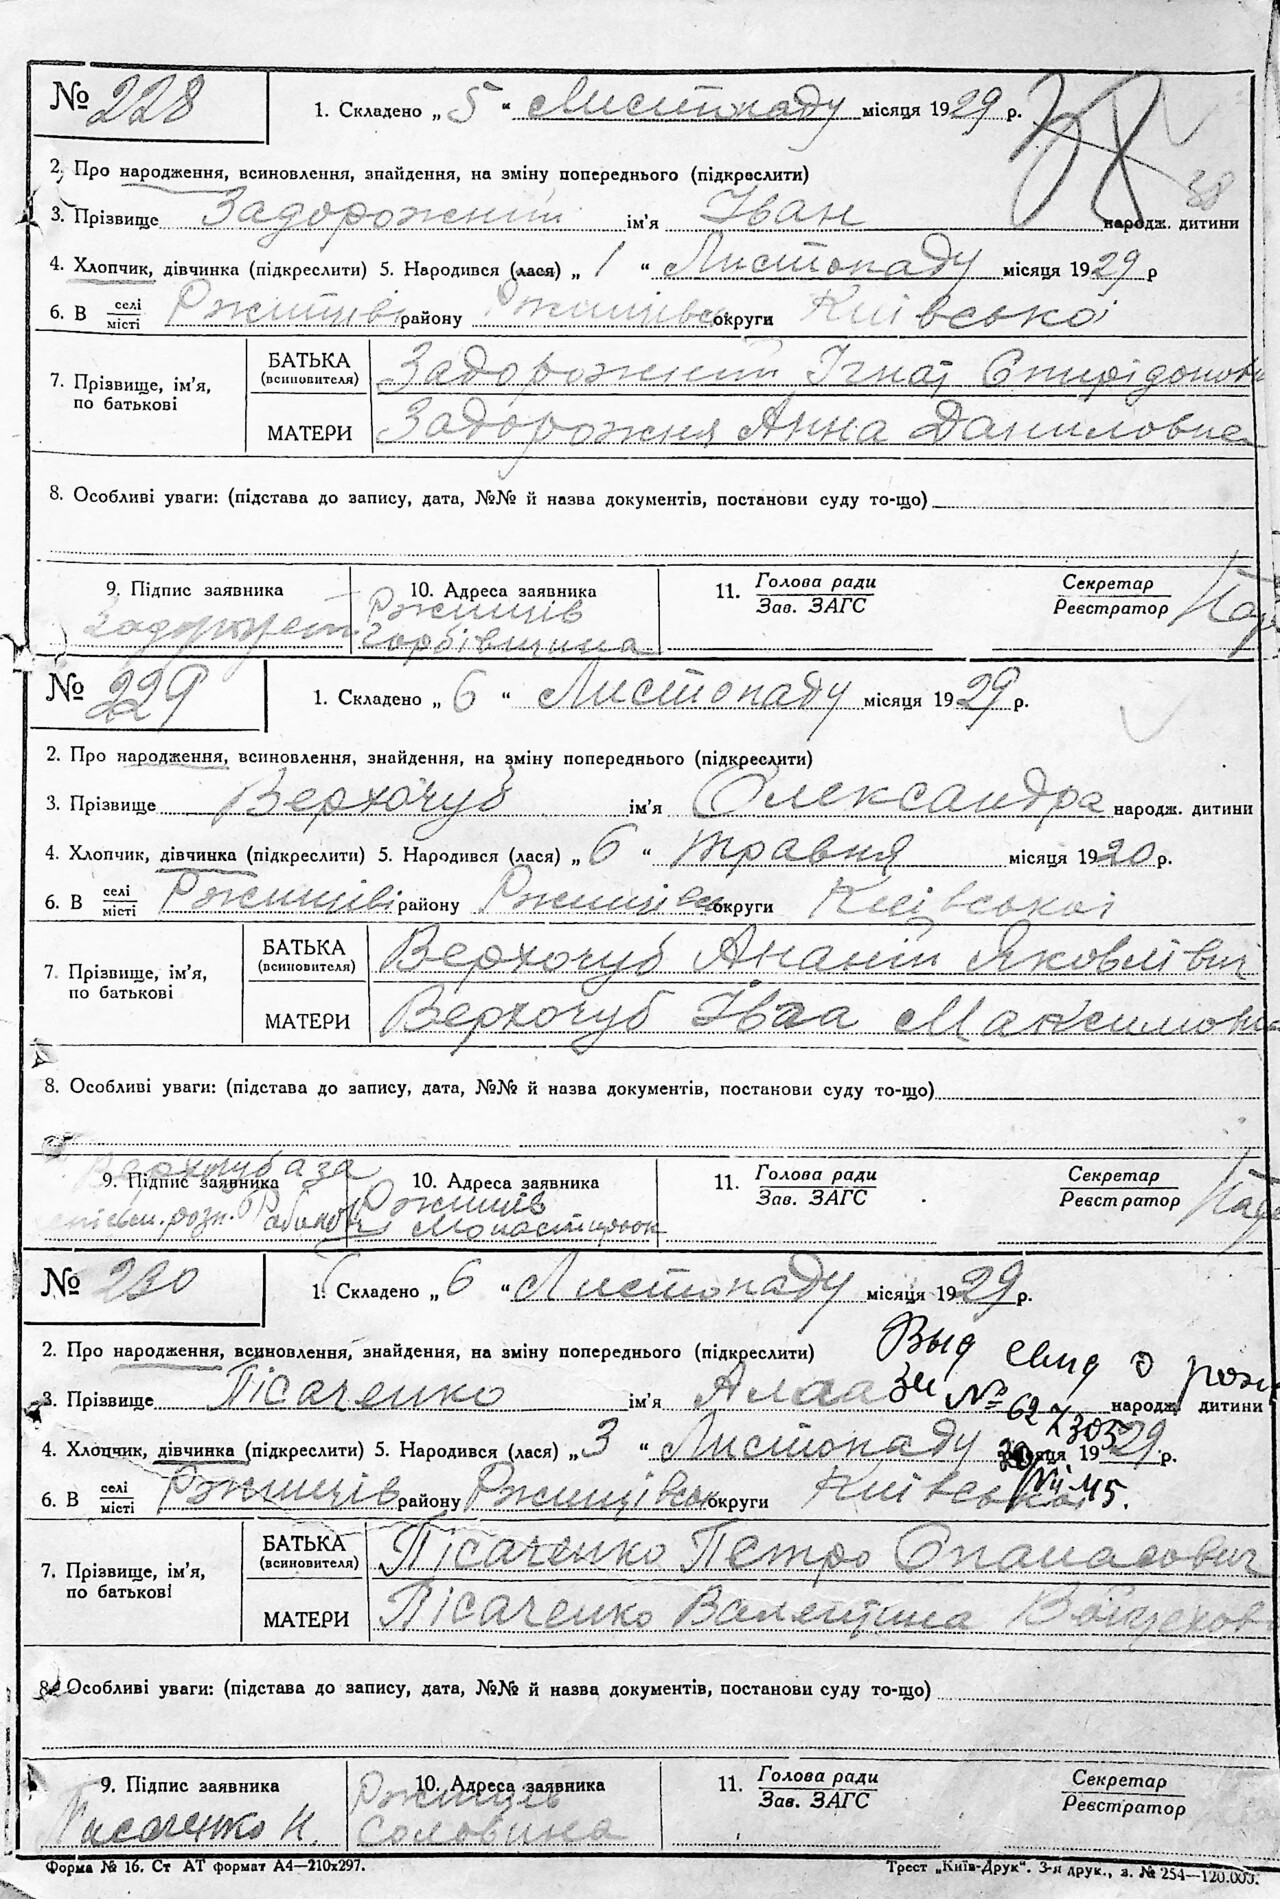 № 228 1. Складено „ 5 “ Листопаду місяця 1929 р.
38
2. Про народження, всиновлення, знайдення, на зміну попереднього (підкреслити)
38
3. Прізвище Задорожній ім'я Іван народж. дитини
4. Хлопчик, дівчинка (підкреслити) 5. Народився (лася) „ 1 “ Листопаду місяця 1929 р
6. В селі/місті Ржищеві району Ржищівськ округи Київської
7. Прізвище, ім'я, по батькові
БАТЬКА (всиновителя) Задорожній Ігнат Спирідонови
МАТЕРИ Задорожня Анна Даниловна
8. Особливі уваги: (підстава до запису, дата, №№ й назва документів, постанови суду то-що)
9. Підпис заявника 10. Адреса заявника 11. Голова ради / Зав. ЗАГС Секретар / Реєстратор
Ржищів
Горбівщина
№ 229 1. Складено „ 6 “ Листопаду місяця 1929 р.
2. Про народження, всиновлення, знайдення, на зміну попереднього (підкреслити)
3. Прізвище Верхочуб ім'я Олександра народж. дитини
4. Хлопчик, дівчинка (підкреслити) 5. Народився (лася) „ 6 “ травня місяця 1920 р.
6. В селі/місті Ржищеві району Ржищівськ округи Київської
7. Прізвище, ім'я, по батькові
БАТЬКА (всиновителя) Верхочуб Ананій Яковлівич
МАТЕРИ Верхочуб Івга Максимовна
8. Особливі уваги: (підстава до запису, дата, №№ й назва документів, постанови суду то-що)
Верхочуба за
9. Підпис заявника 10. Адреса заявника 11. Голова ради / Зав. ЗАГС Секретар / Реєстратор
Ржищів
№ 230 1. Складено „ 6 “ Листопаду місяця 1929 р.
2. Про народження, всиновлення, знайдення, на зміну попереднього (підкреслити)
Выд свид о рожд
3. Прізвище Пісаченко ім'я Алла народж. дитини
зи № 627305
4. Хлопчик, дівчинка (підкреслити) 5. Народився (лася) „ 3 “ Листопаду місяця 1929 р.
6. В селі/місті Ржищів району Ржищівськ округи Київської
7. Прізвище, ім'я, по батькові
БАТЬКА (всиновителя) Пісаченко Петро Опанасович
МАТЕРИ Пісаченко Валентина
8. Особливі уваги: (підстава до запису, дата, №№ й назва документів, постанови суду то-що)
9. Підпис заявника 10. Адреса заявника 11. Голова ради / Зав. ЗАГС Секретар / Реєстратор
Писаченко Ржищів
Соловина
Форма № 16. Ст АТ формат А4—210х297. Трест „Київ-Друк“. 3-я друк., з. № 254—120.000.